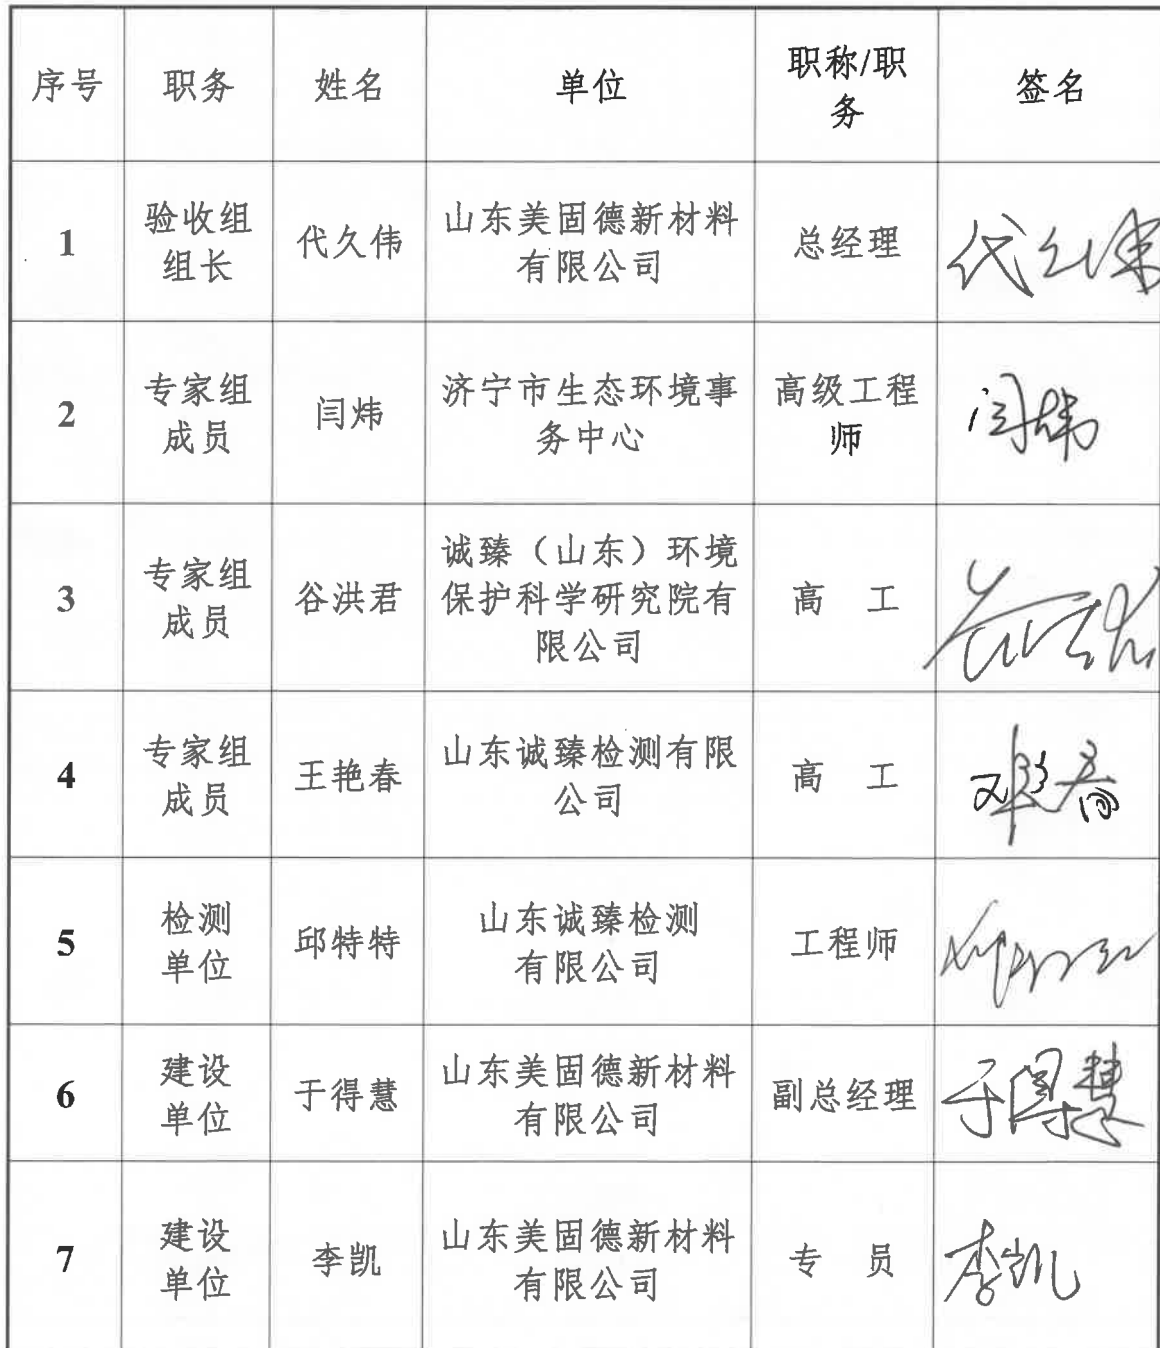 序号 职务 姓名 单位 职称/职
务 签名
1 验收组
组长 代久伟 山东美固德新材料
有限公司 总经理 代久伟
2 专家组
成员 闫炜 济宁市生态环境事
务中心 高级工程
师 闫炜
3 专家组
成员 谷洪君 诚臻（山东）环境
保护科学研究院有
限公司 高 工
4 专家组
成员 王艳春 山东诚臻检测有限
公司 高 工
5 检测
单位 邱特特 山东诚臻检测
有限公司 工程师
6 建设
单位 于得慧 山东美固德新材料
有限公司 副总经理 于得慧
7 建设
单位 李凯 山东美固德新材料
有限公司 专 员 李凯